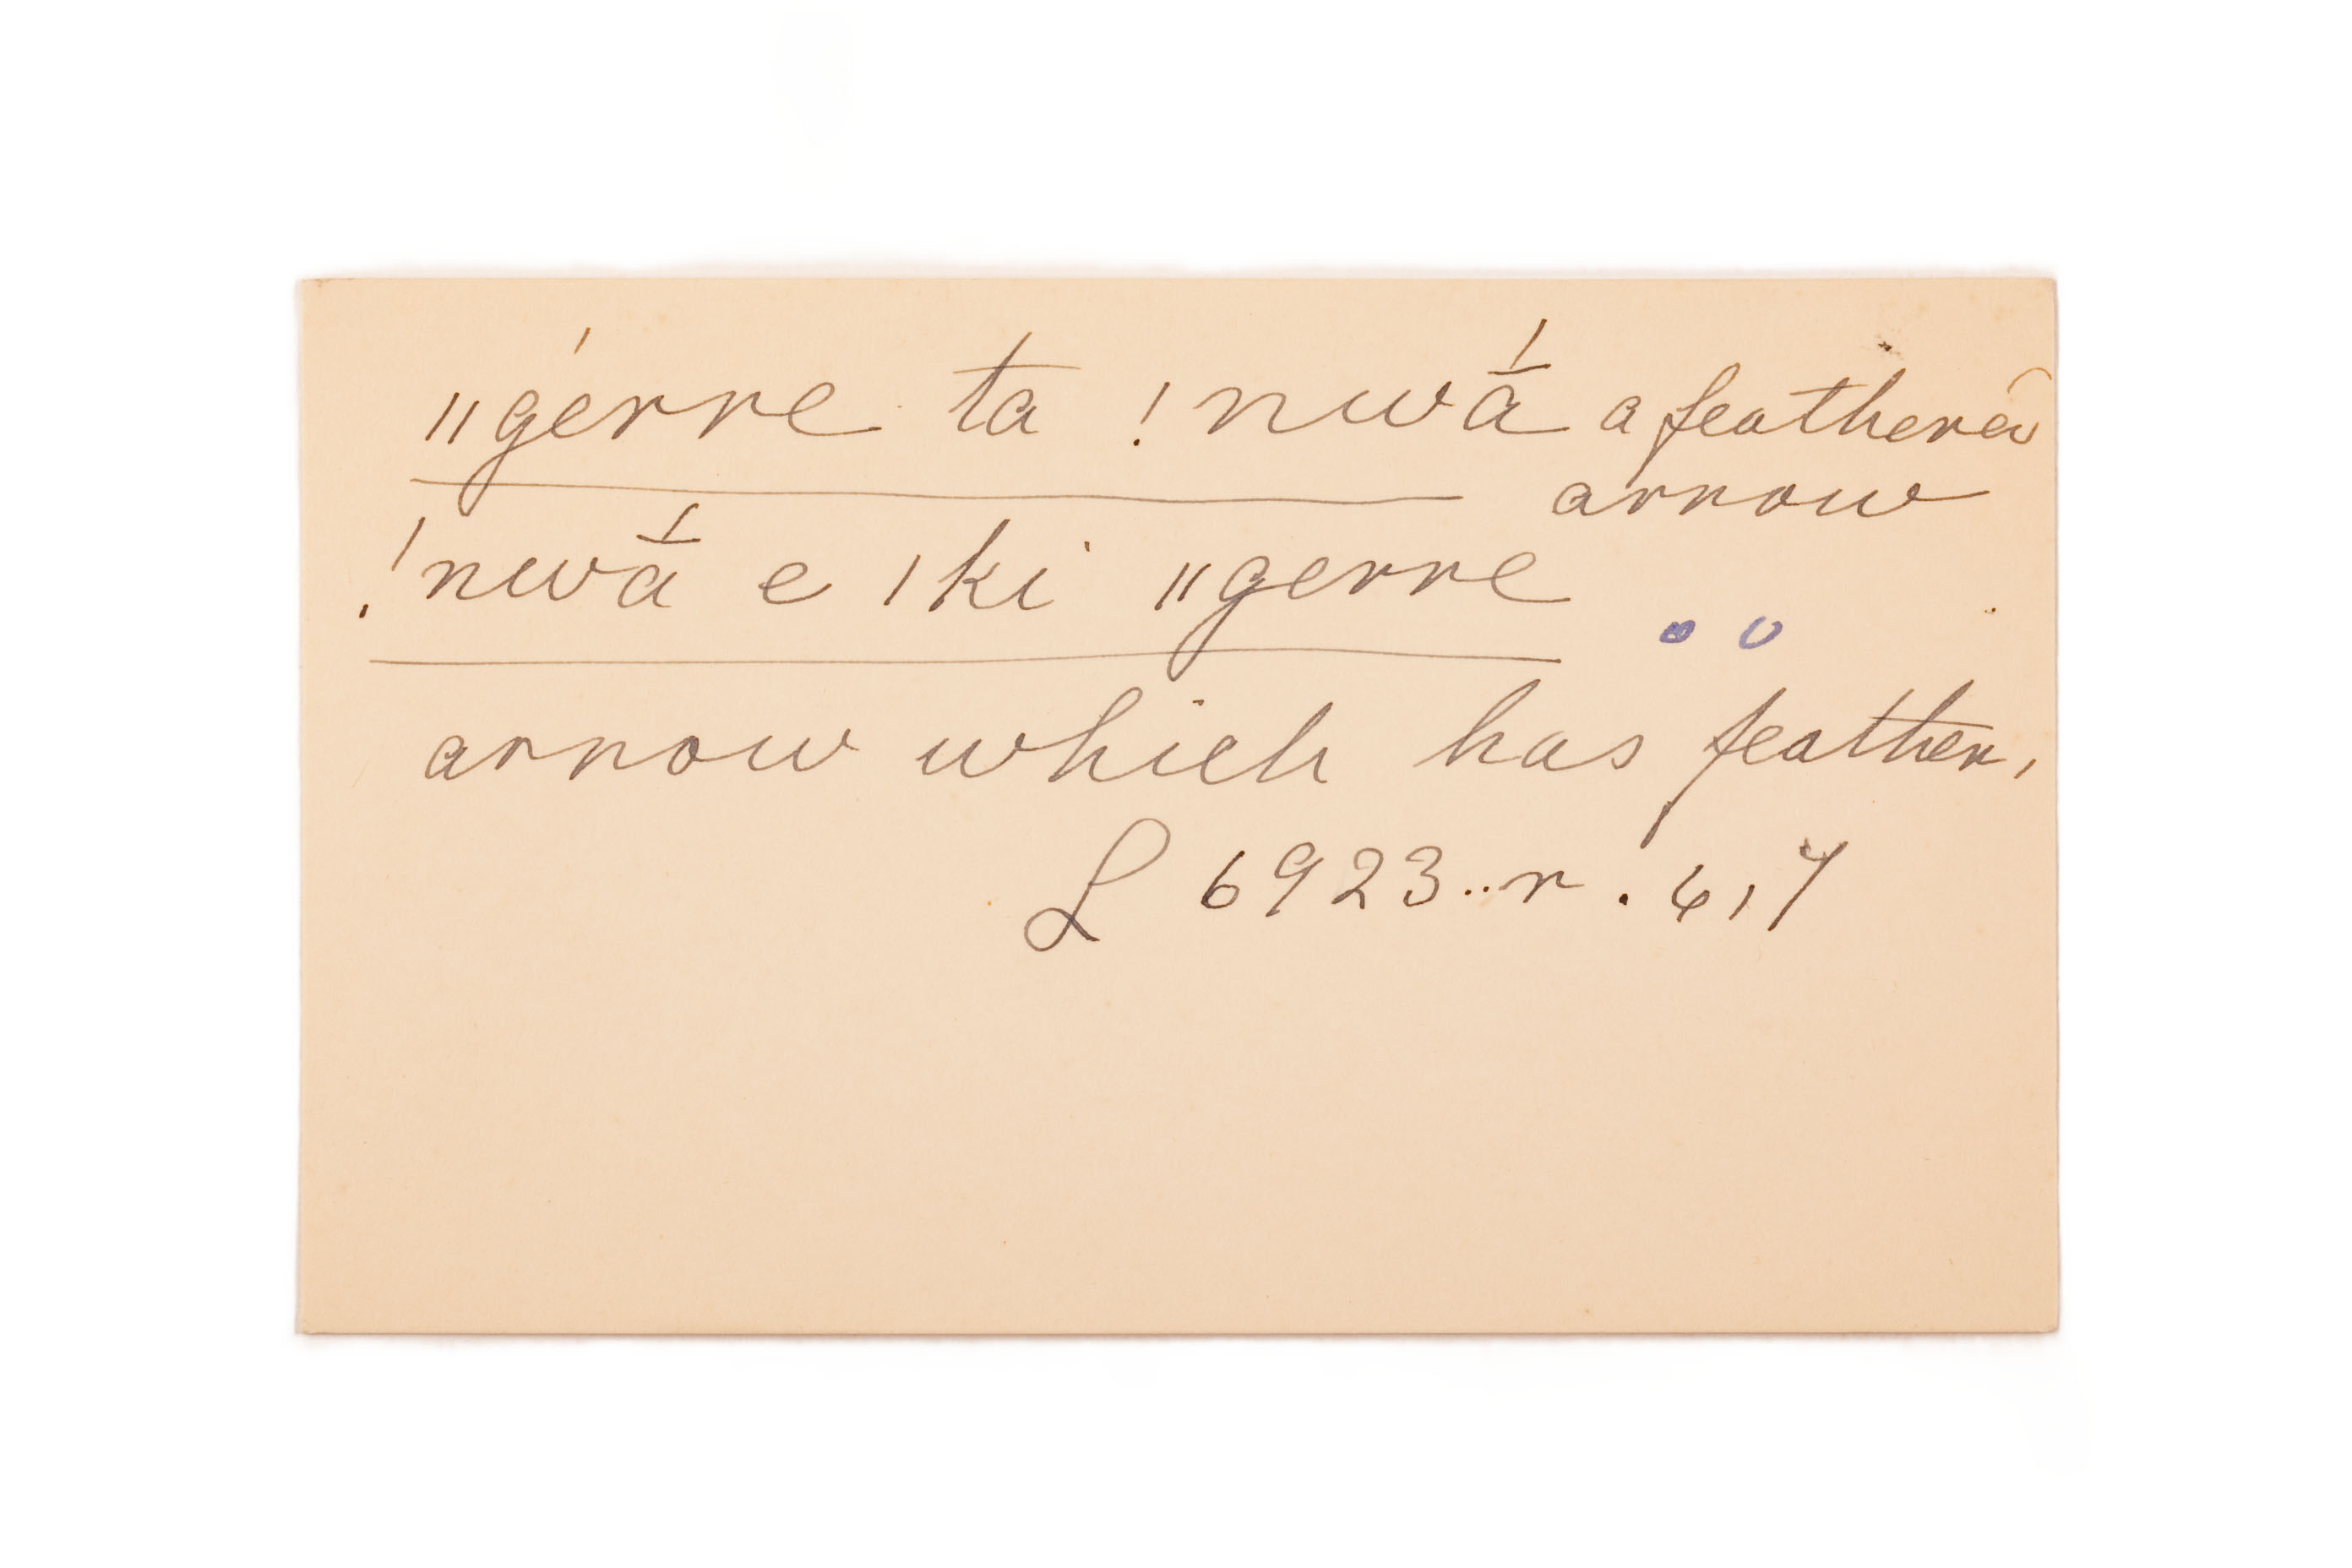 ǁgérre ta ǃnwā́ a feathered
arrow
ǃnwā́ e ǀki ǁgerre
arrow which has feather,
L 6923..r. 6,7